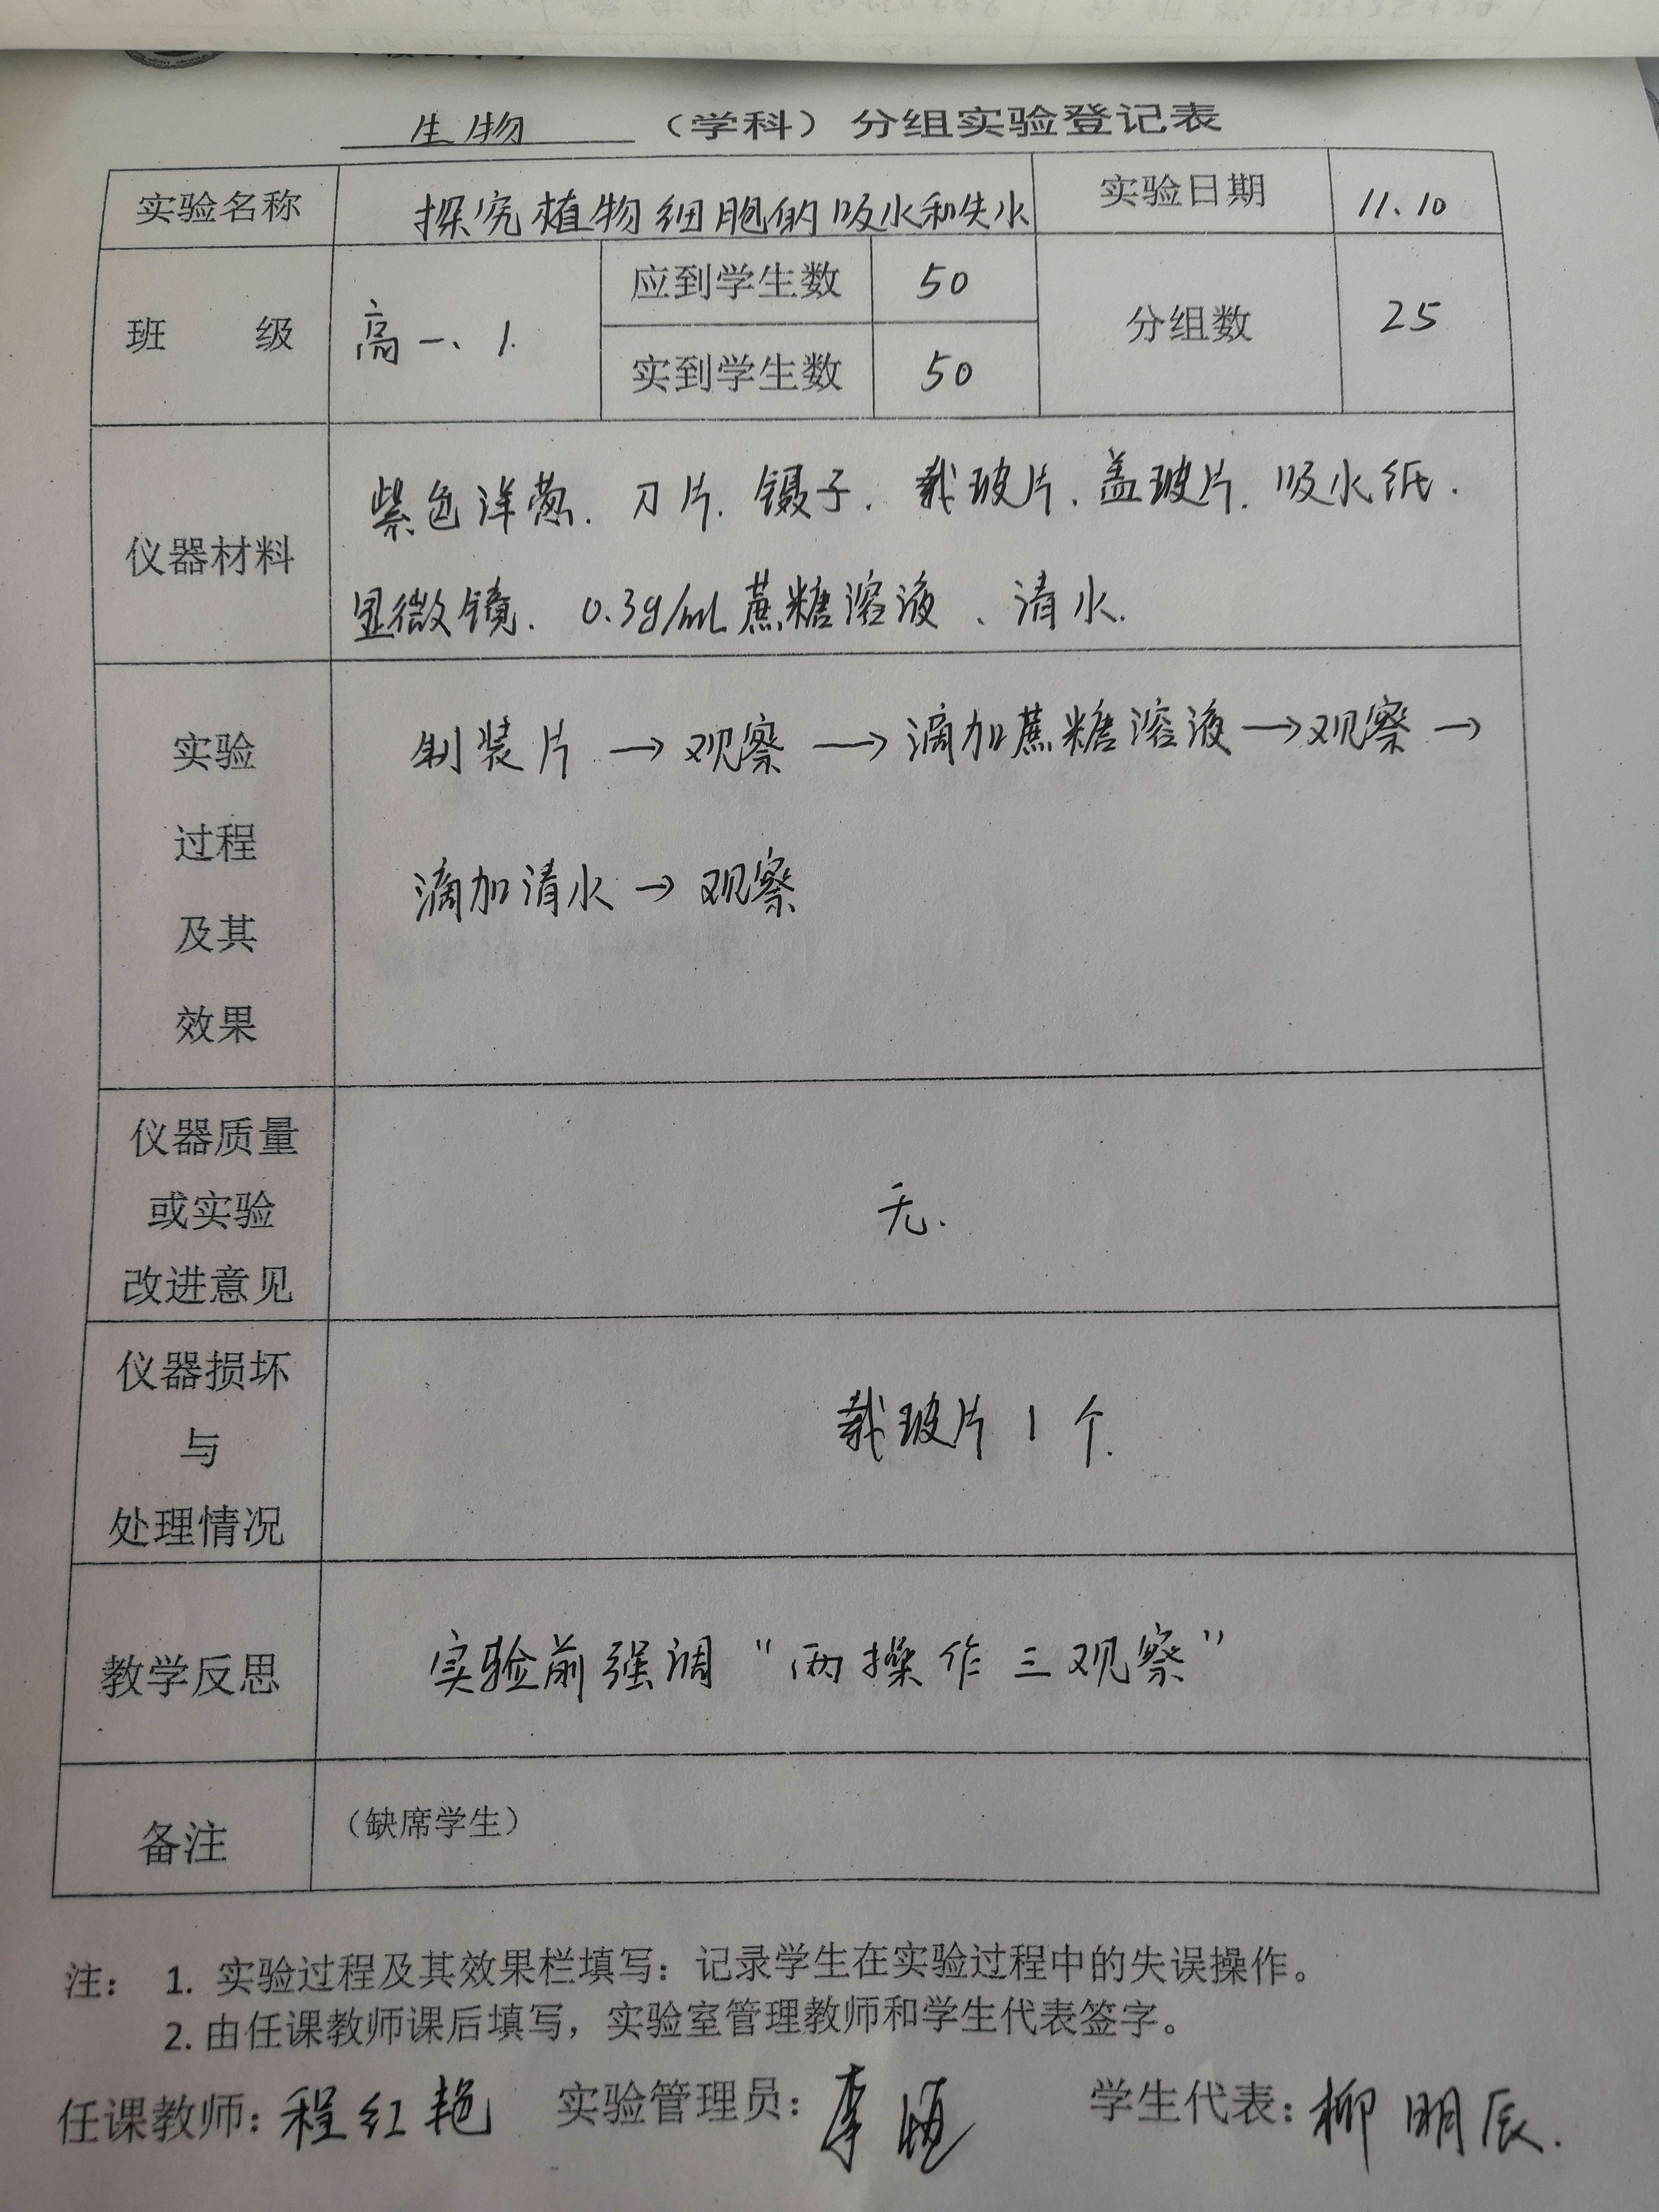 生物 （学科）分组实验登记表
实验名称 探究植物细胞的吸水和失水 实验日期 11.10
班 级 高一、1. 应到学生数 50 分组数 25
实到学生数 50
仪器材料
紫色洋葱. 刀片. 镊子. 载玻片. 盖玻片. 吸水纸.
显微镜. 0.3g/mL蔗糖溶液、清水.
实验
过程
及其
效果
制装片 → 观察 → 滴加蔗糖溶液 → 观察 →
滴加清水 → 观察
仪器质量
或实验
改进意见
无.
仪器损坏
与
处理情况
载玻片 1 个.
教学反思 实验前强调“两操作三观察”
备注 （缺席学生）
注： 1. 实验过程及其效果栏填写：记录学生在实验过程中的失误操作。
2. 由任课教师课后填写，实验室管理教师和学生代表签字。
任课教师：程红艳 实验管理员：李 学生代表：柳明辰.